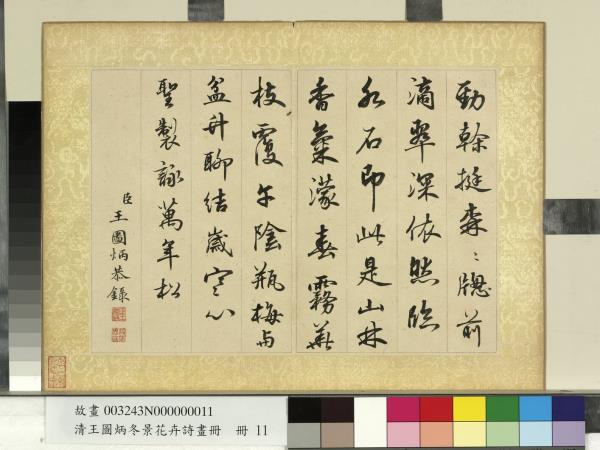 勁榦挺森〻牕前
滴翠深依然臨
水石即此是山林
香氣濛春霧叢
枝覆午陰瓶梅与
盆卉聊結歲寒心
聖製詠萬年松
臣王圖炳恭錄
故畫 003243N000000011
清王圖炳冬景花卉詩畫冊 冊 11